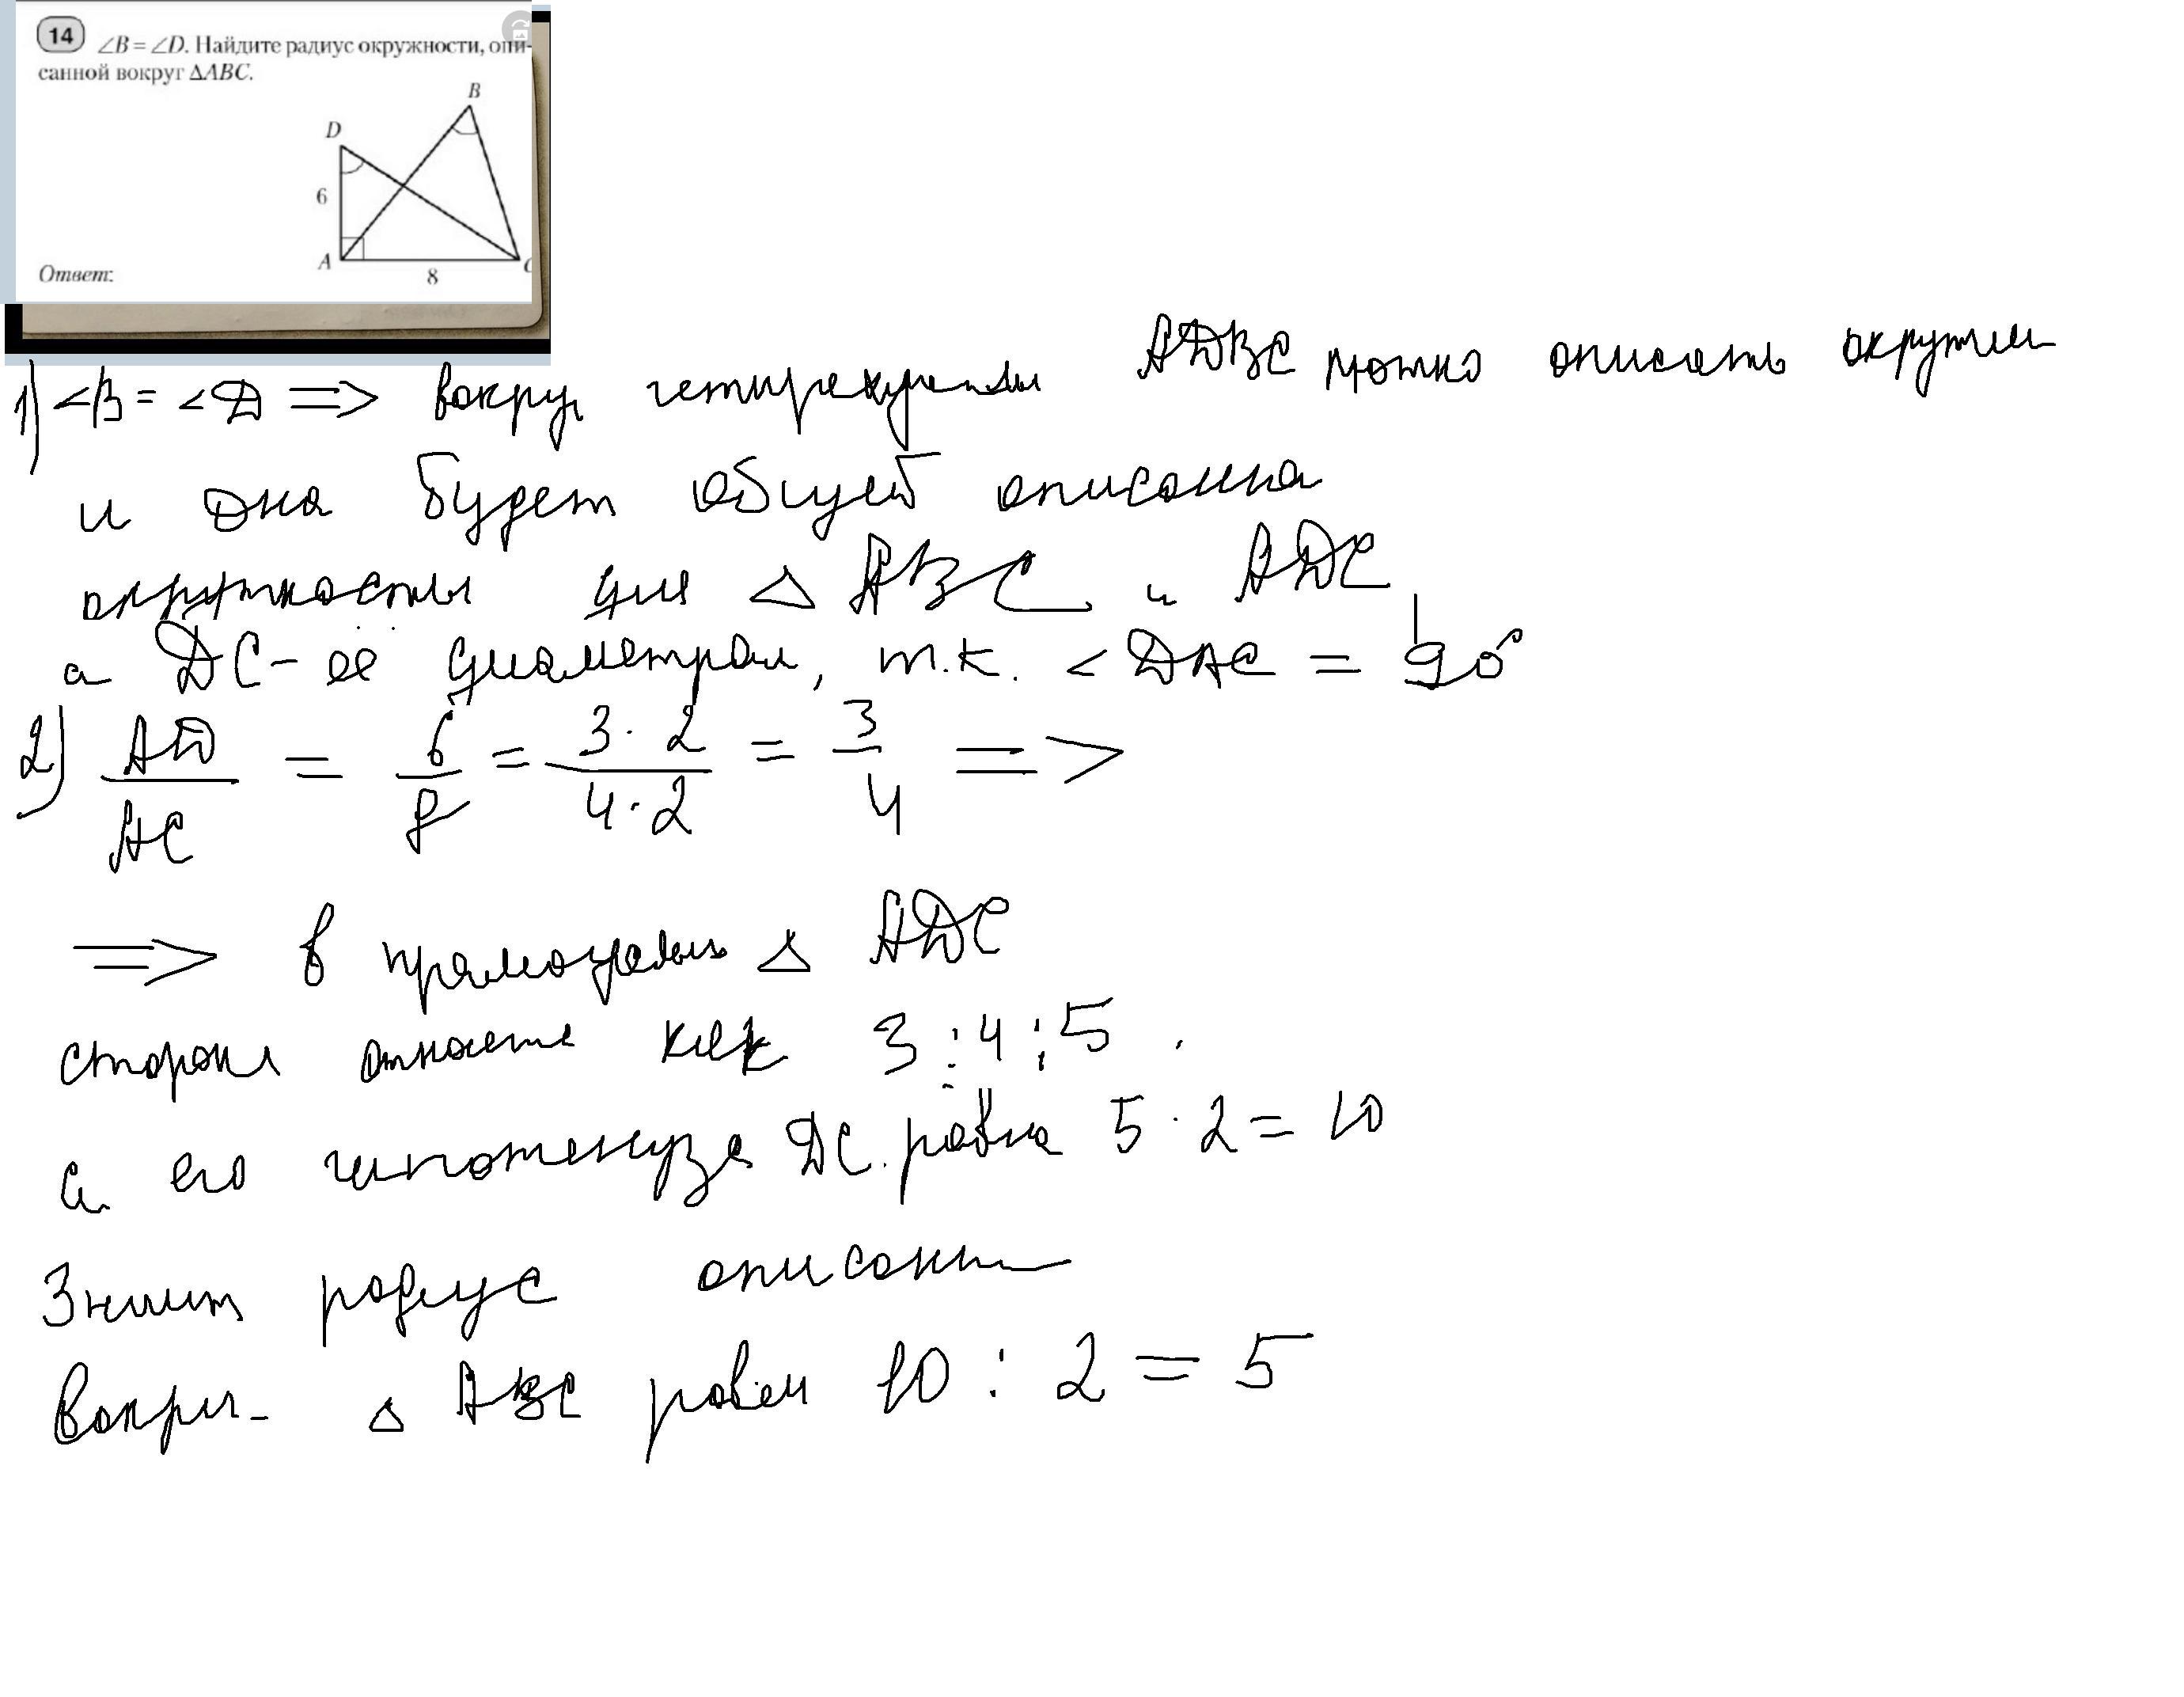 14 ∠B = ∠D. Найдите радиус окружности, опи-
санной вокруг ΔABC.
B
D
6
A
C
8
Ответ:
1) ∠B = ∠D => вокруг четырехугольн ADBC можно описать окружн
и она будет общей описанна
окружность для Δ ABC и ADC,
а DC - её диаметром, т.к. ∠DAC = 90°
2) AD/AC = 6/8 = 3·2/4·2 = 3/4 =>
=> в прямоугольн Δ ADC
стороны относятс как 3:4:5.
а его гипотенуза DC равна 5·2=10
Значит радиус описанн
вокруг Δ ABC равен 10:2=5